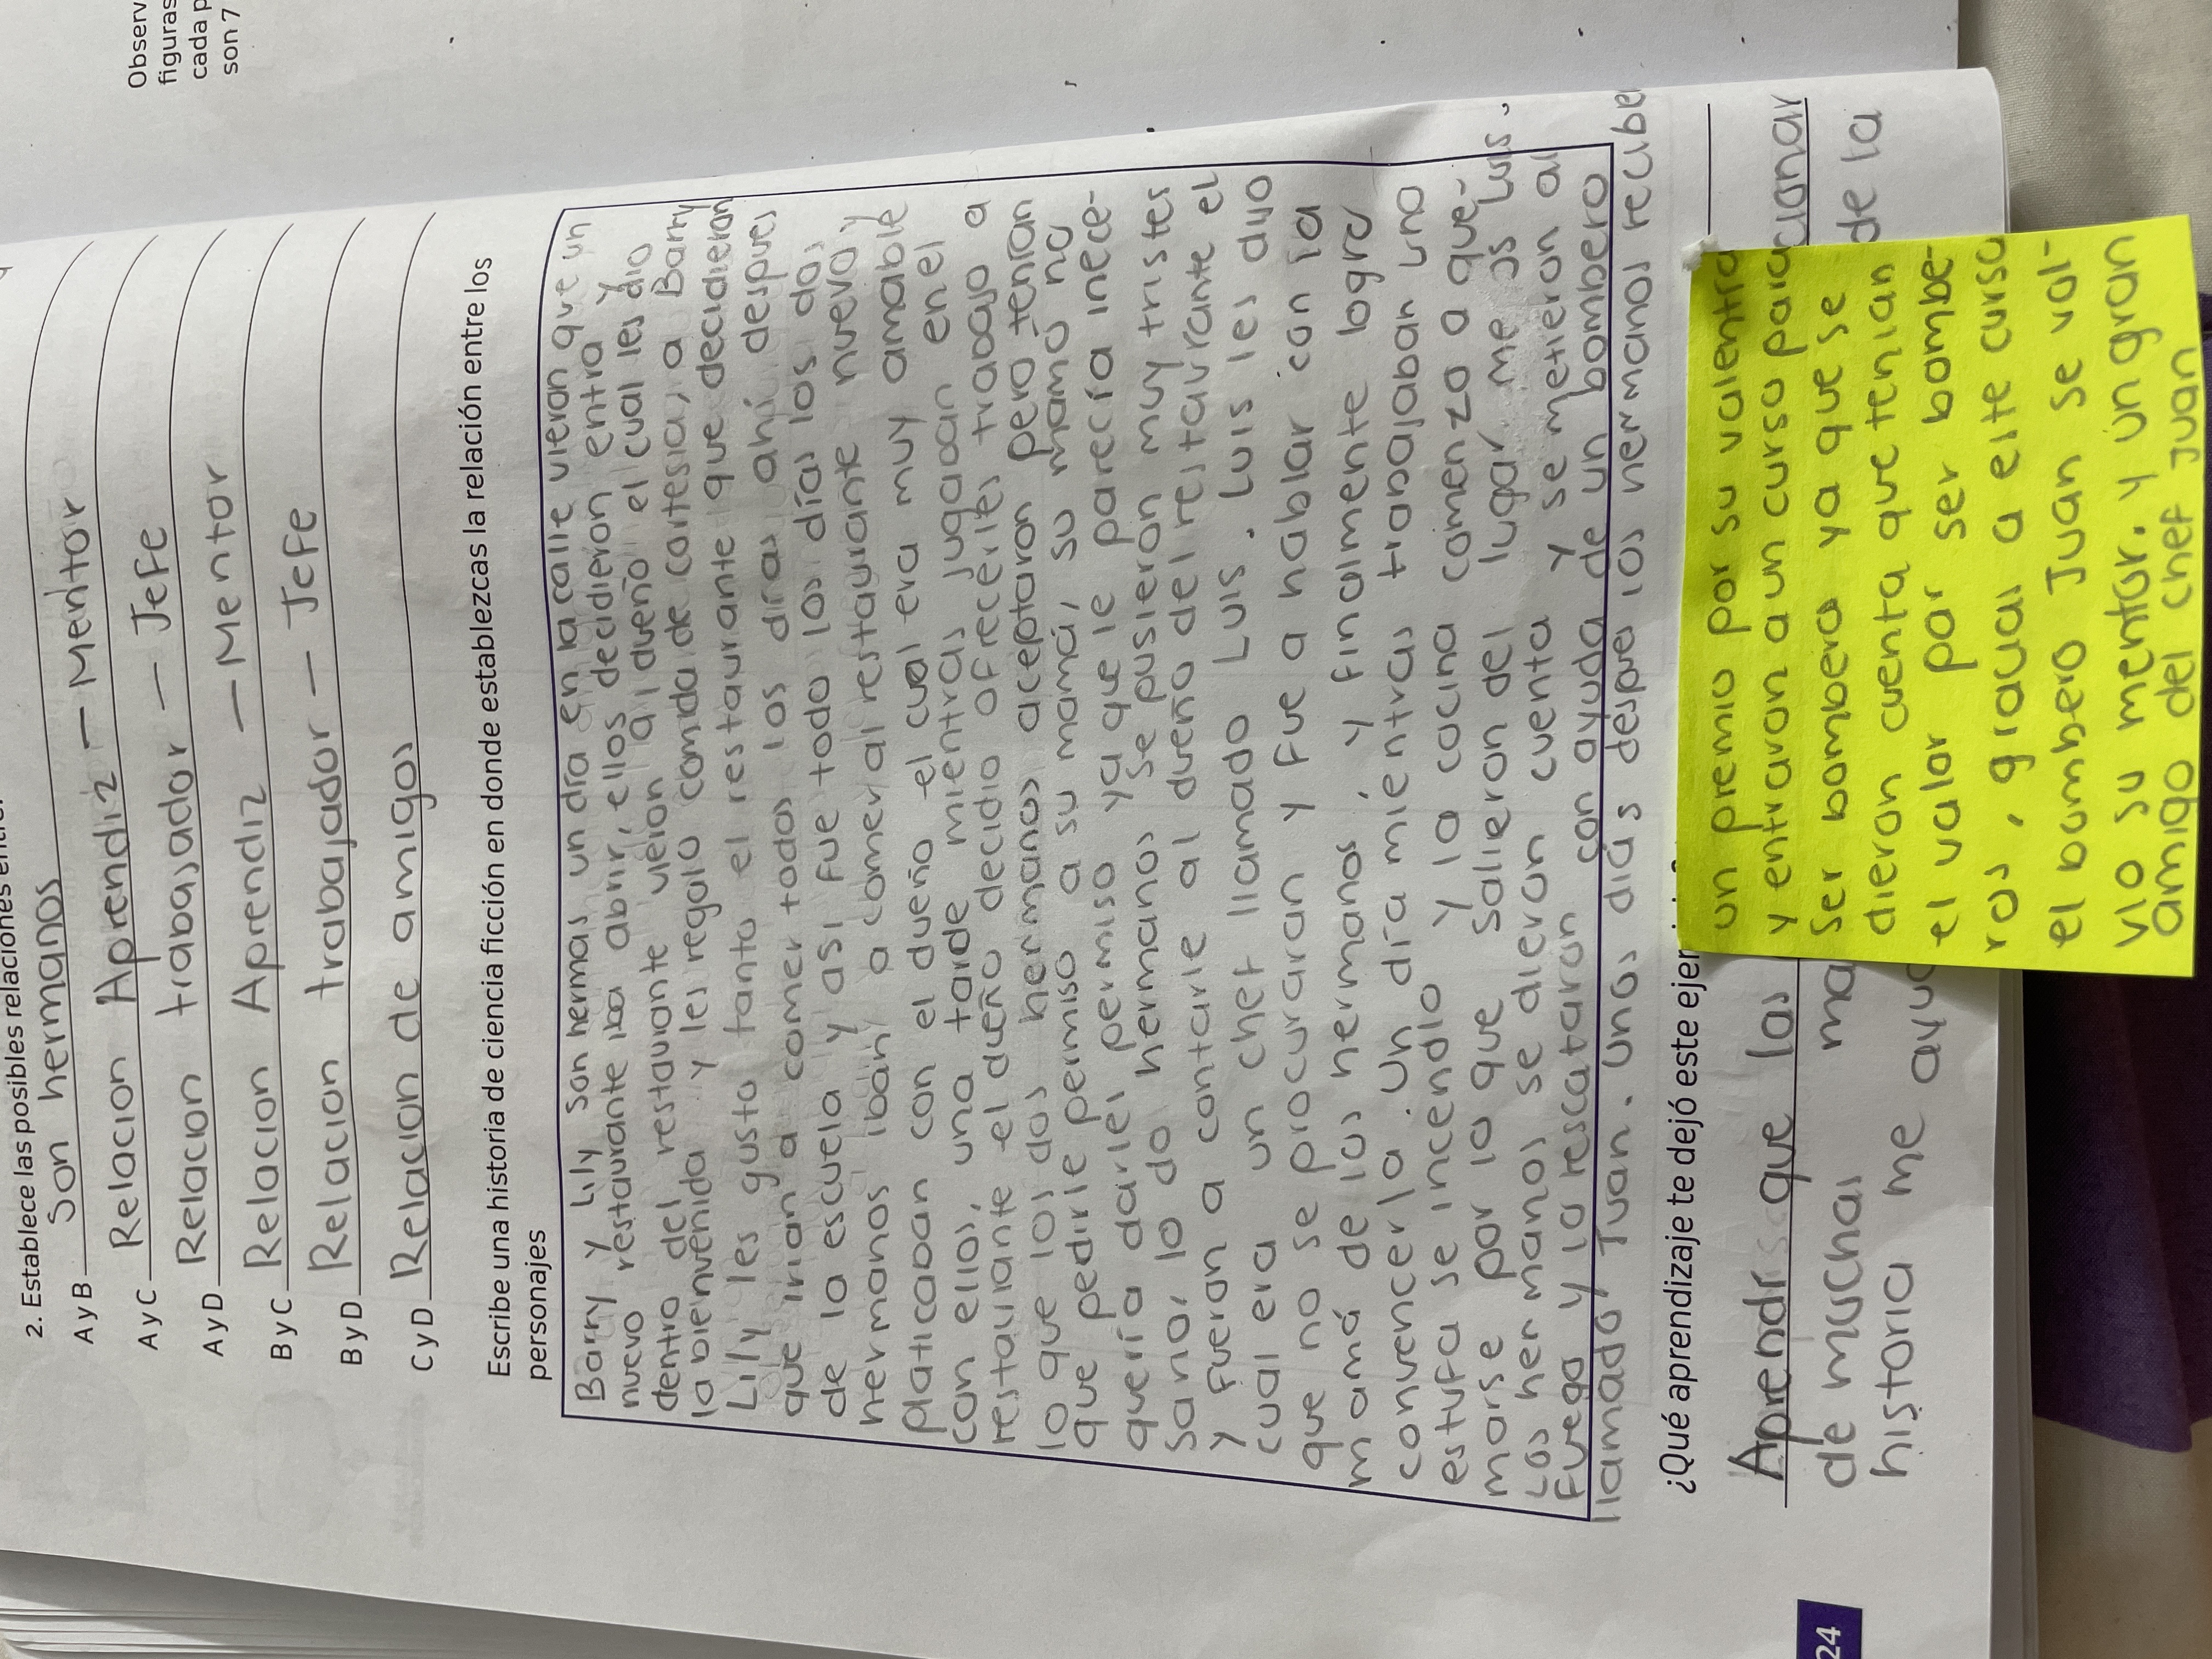 Observ
figuras
cada p
son 7
2. Establece las posibles relaciones entre:
A y B Son hermanos
A y C Relacion Aprendiz — Mentor
A y D Relacion trabajador — Jefe
B y C Relacion Aprendiz — Mentor
B y D Relacion trabajador — Jefe
C y D Relacion de amigos
Escribe una historia de ciencia ficción en donde establezcas la relación entre los
personajes
Barry y Lily son hermas un día en la calle vieron que un
nuevo restaurante iba abrir, ellos decidieron entra y
dentro del restaurante vieron al dueño el cual les dio
la bienvenida y les regalo comida de cortesia, a Barry
Lily les gusto tanto el restaurante que decidieron
que irian a comer todos los días ahí despues
de la escuela y asi fue todo los días los dos
hermanos iban a comer al restaurante nuevo y
platicaban con el dueño el cual era muy amable
con ellos, una tarde mientras jugaban en el
restaurante el dueño decidio ofrecerles trabajo a
lo que los dos hermanos aceptaron pero tenían
que pedirle permiso a su mamá, su mamá no
quería darles permiso ya que le parecía inece-
sario, lo do hermanos se pusieron muy tristes
y fueron a contarle al dueño del restaurante el
cual era un chef llamado Luis. Luis les dijo
que no se procuraran y fue a hablar con la
mamá de los hermanos, y finalmente logro
convencerla. Un día mientras trabajaban uno
estufa se incendio y la cocina comenzo a que-
marse por lo que salieron del lugar me os Luis.
Los hermanos se dieron cuenta y se metieron al
Fuego y lo rescataron con ayuda de un bombero
llamado Juan. Unos dias despues los hermanos recibe
un premio por su valentra
y entraron a un curso para
ser bombero ya que se
dieron cuenta que tenian
el valor para ser bombe-
ros, gracias a este curso
el bombero Juan se vol-
vio su mentor. y un gran
amigo del chef Juan
¿Qué aprendizaje te dejó este ejer
Aprendi que las cionar
de muchas ma de la
historia me ayud
24